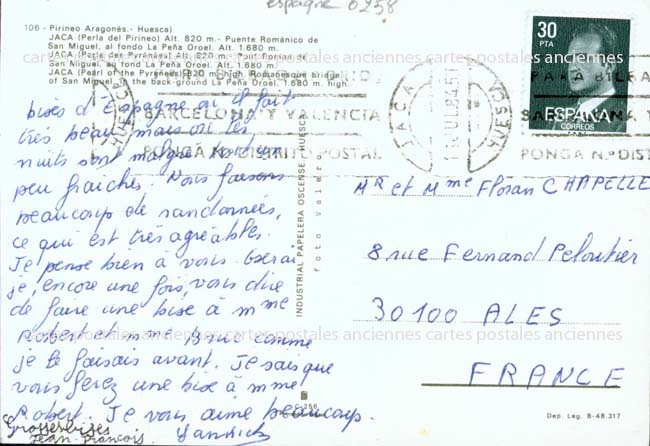 espagne 0258
106 - Pirineo Aragonés.- Huesca)
JACA (Perla del Pirineo) Alt. 820 m.- Puente Románico de
San Miguel, al fondo La Peña Oroel. Alt. 1.680 m.
JACA (Perle des Pyrénées) Alt. 820 m.- Pont Roman de
San Miguel, au fond La Peña Oroel. Alt. 1.680 m.
JACA (Pearl of the Pyrenées) 820 m. high. Romanesque bridge
of San Miguel, in the back-ground La Peña Oroel. 1.680 m. high.
30
PTA
ESPAÑA
CORREOS
BARCELONA Y VALENCIA
PONGA N.º DISTRITO POSTAL
JACA
HUESCA
PARA BILBA
PONGA N.º DIST
bises d'Espagne où il fait
très beau mais où les
nuits sont malgré tout un
peu fraîches. Nous faisons
beaucoup de randonnées,
ce qui est très agréable.
Je pense bien à vous. Oserai
je, encore une fois, vous dire
de faire une bise à mme
Robert et mme comme
je le faisais avant. Je sais que
vous ferez une bise à mme
Robert. Je vous aime beaucoup.
Yannick
Grosses bises
Jean-François
INDUSTRIAL PAPELERA OSCENSE.-HUESCA
foto valero
C-256
Mr et Mme Floran CHAPELLE
8 rue Fernand Peloutier
30100 ALES
FRANCE
Dep. Leg. B-48.317
cartes postales anciennes cartes postales anciennes cartes postales anciennes